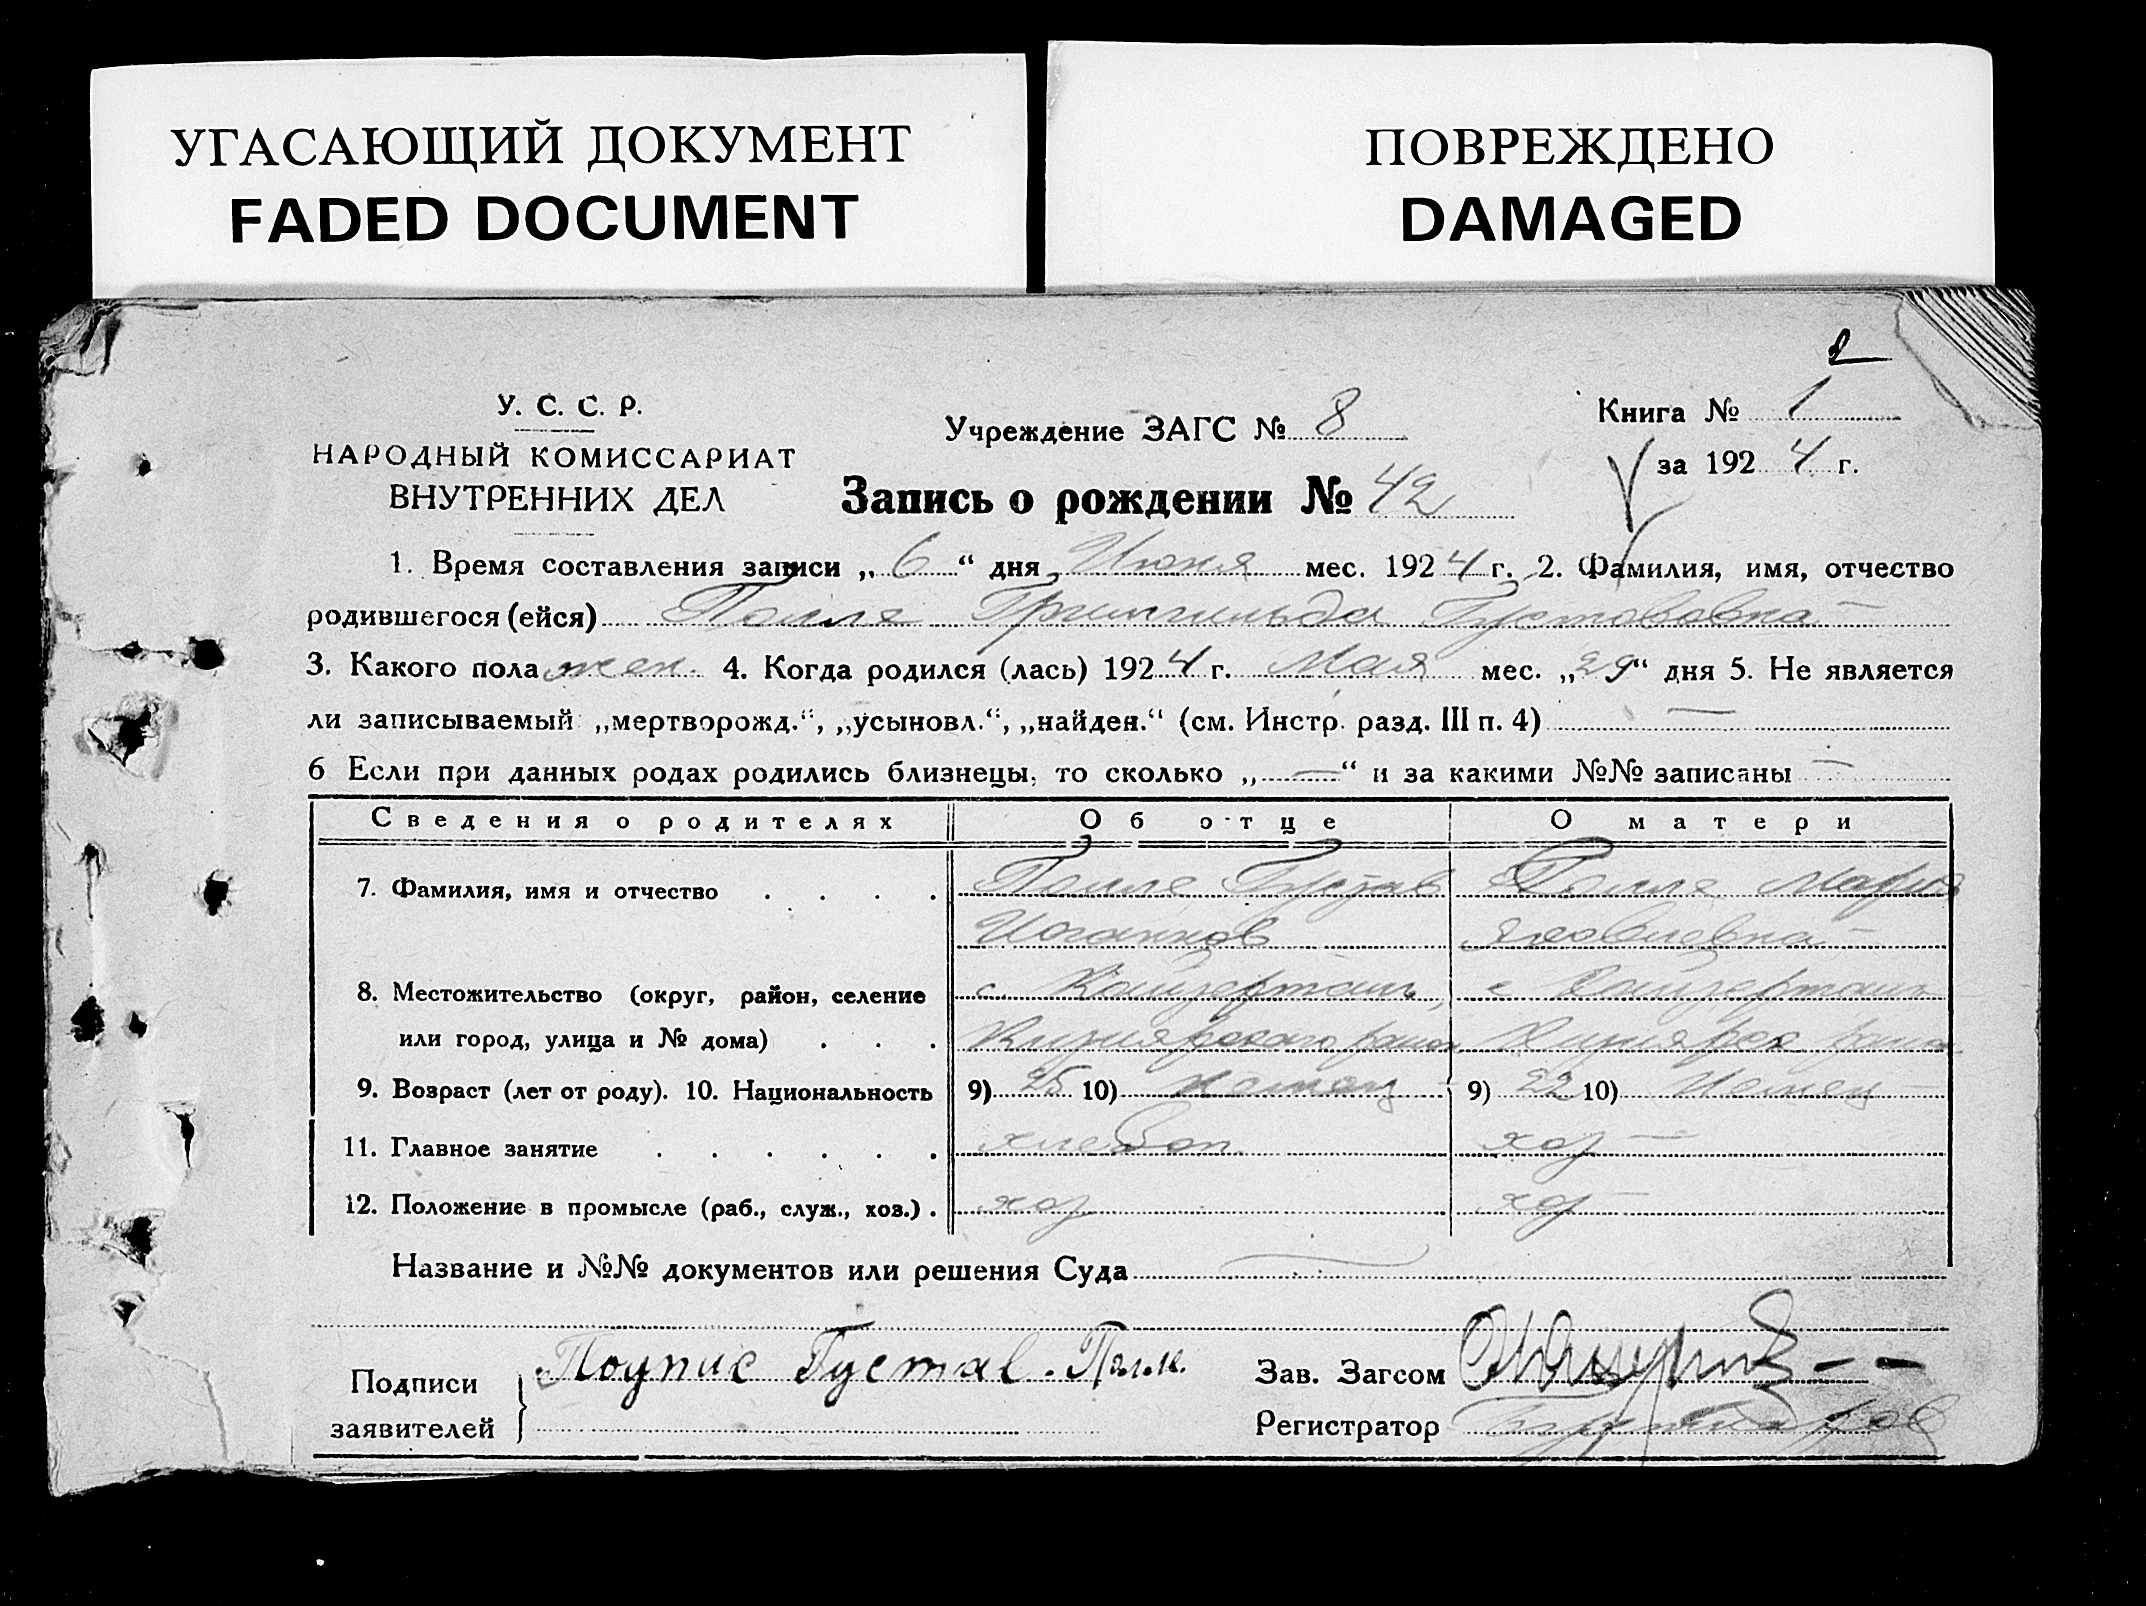 УГАСАЮЩИЙ ДОКУМЕНТ
FADED DOCUMENT
ПОВРЕЖДЕНО
DAMAGED
2
У. С. С. Р.
НАРОДНЫЙ КОМИССАРИАТ
ВНУТРЕННИХ ДЕЛ
Учреждение ЗАГС № 8
Книга № 1
за 1924 г.
Запись о рождении № 42
1. Время составления записи „6“ дня Июня мес. 1924 г. 2. Фамилия, имя, отчество
родившегося (ейся) Полле Гримгильда Густововна —
3. Какого пола жен. 4. Когда родился (лась) 1924 г. Мая мес. „29“ дня 5. Не является
ли записываемый „мертворожд.“, „усыновл.“, „найден.“ (см. Инстр. разд. III п. 4) —
6 Если при данных родах родились близнецы, то сколько „—“ и за какими №№ записаны —
Сведения о родителях Об отце О матери
7. Фамилия, имя и отчество . . . . Полле Густав Полле Мария
Иоганнов Яковлевна —
8. Местожительство (округ, район, селение с. Кайзерталь, с Кайзерталь
или город, улица и № дома) . . . район
9. Возраст (лет от роду). 10. Национальность 9) 25 10) Немец 9) 22 10) Немец —
11. Главное занятие . . . . . . хлебоп. хоз —
12. Положение в промысле (раб., служ., хоз.) . хоз хоз —
Название и №№ документов или решения Суда —
Подписи заявителей } Подпис Густав. Полле.
Зав. Загсом
Регистратор